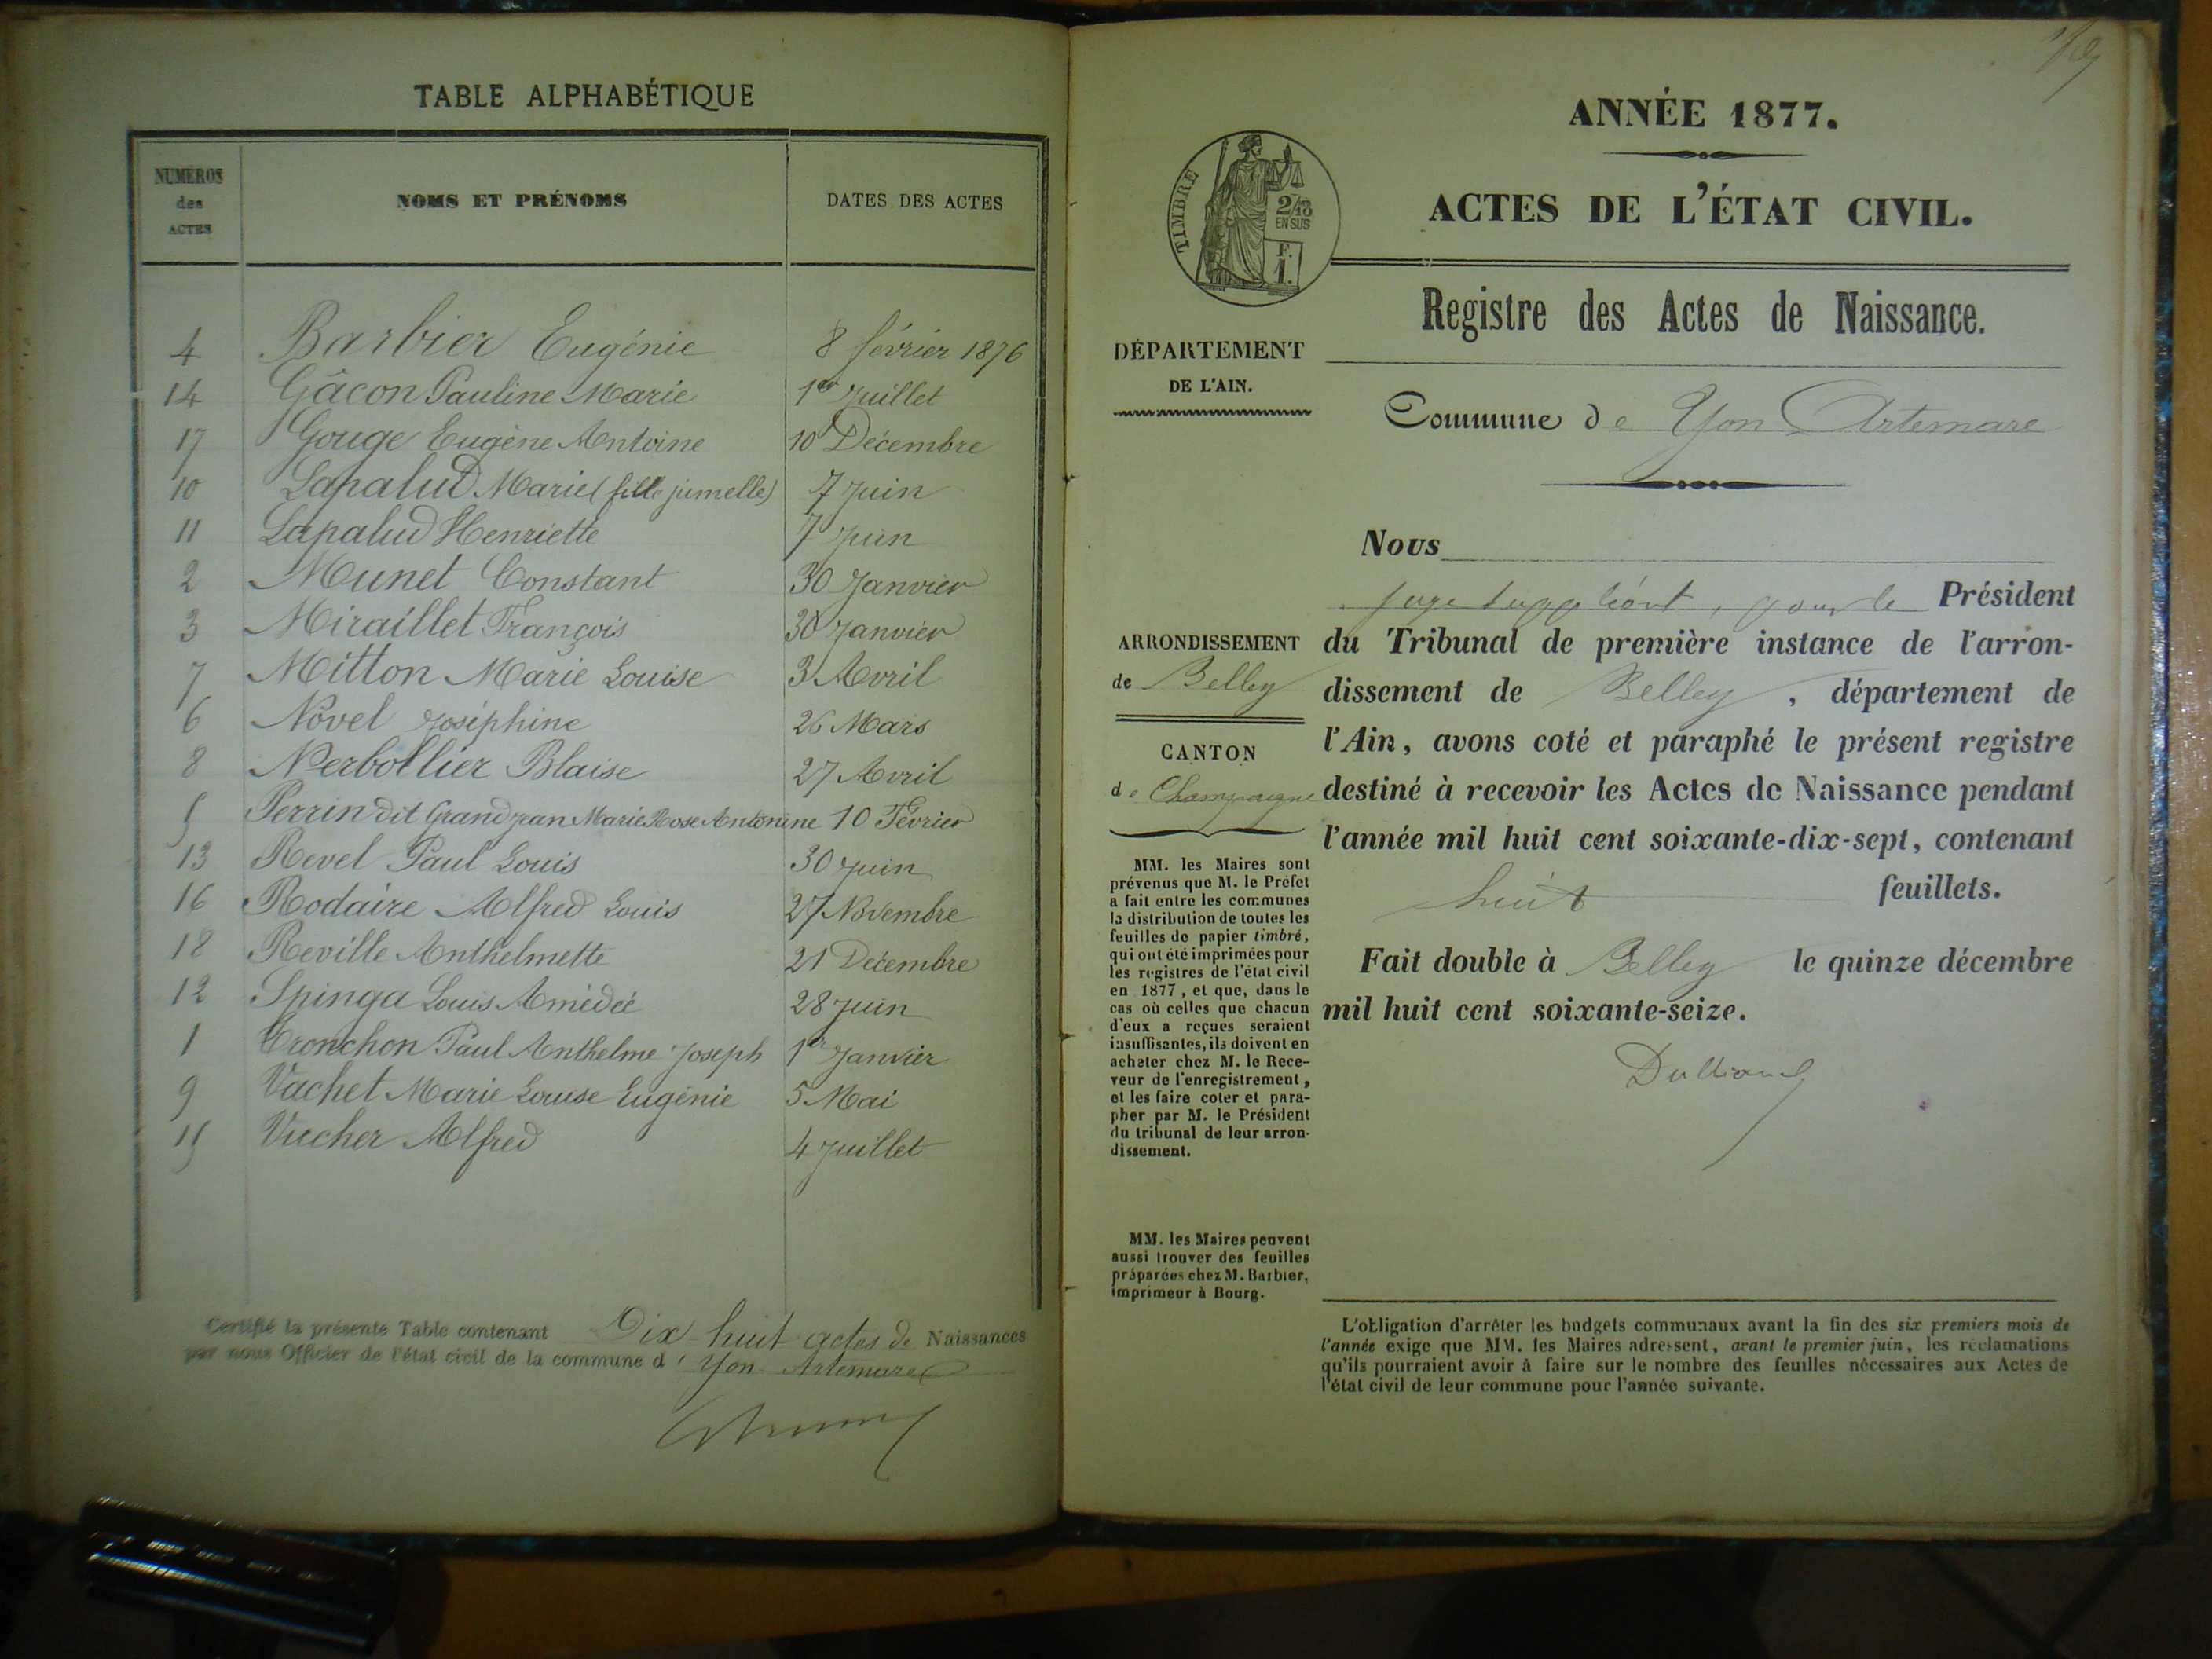 TABLE ALPHABÉTIQUE
NUMÉROS des ACTES
NOMS ET PRÉNOMS
DATES DES ACTES
4 Barbier Eugénie 8 février 1876
14 Gâcon Pauline Marie 1er Juillet
17 Gouge Eugène Antoine 10 Décembre
10 Lapalud Marie (fille jumelle) 7 Juin
11 Lapalud Henriette 7 Juin
2 Munet Constant 30 Janvier
3 Miraillet François 30 Janvier
7 Mitton Marie Louise 3 Avril
6 Novel Joséphine 26 Mars
8 Nerbollier Blaise 27 Avril
5 Perrin dit Grand jean Marie Rose Antonine 10 Février
13 Revel Paul Louis 30 Juin
16 Rodaire Alfred Louis 27 Novembre
18 Reville Anthelmette 21 Décembre
12 Spinga Louis Amédée 28 Juin
1 Tronchon Paul Anthelme Joseph 1er Janvier
9 Vachet Marie Louise Eugénie 5 Mai
15 Vucher Alfred 4 Juillet
Certifié la présente Table contenant Dix huit actes de Naissances
par nous Officier de l'état civil de la commune d' Yon Artemare
ANNÉE 1877.
ACTES DE L'ÉTAT CIVIL.
TIMBRE
2/10
EN SUS
F.
1.
Registre des Actes de Naissance.
DÉPARTEMENT
DE L'AIN.
Commune de Yon Artemare
Nous
juge suppléant, pour le Président
ARRONDISSEMENT
de Belley
CANTON
de Champagne
du Tribunal de première instance de l'arron-
dissement de Belley, département de
l'Ain, avons coté et paraphé le présent registre
destiné à recevoir les Actes de Naissance pendant
l'année mil huit cent soixante-dix-sept, contenant
huit feuillets.
Fait double à Belley le quinze décembre
mil huit cent soixante-seize.
MM. les Maires sont
prévenus que M. le Préfet
a fait entre les communes
la distribution de toutes les
feuilles de papier timbré,
qui ont été imprimées pour
les registres de l'état civil
en 1877, et que, dans le
cas où celles que chacun
d'eux a reçues seraient
insuffisantes, ils doivent en
acheter chez M. le Rece-
veur de l'enregistrement,
et les faire coter et para-
pher par M. le Président
du tribunal de leur arron-
dissement.
MM. les Maires peuvent
aussi trouver des feuilles
préparées chez M. Barbier,
imprimeur à Bourg.
L'obligation d'arrêter les budgets communaux avant la fin des six premiers mois de
l'année exige que MM. les Maires adressent, avant le premier juin, les réclamations
qu'ils pourraient avoir à faire sur le nombre des feuilles nécessaires aux Actes de
l'état civil de leur commune pour l'année suivante.